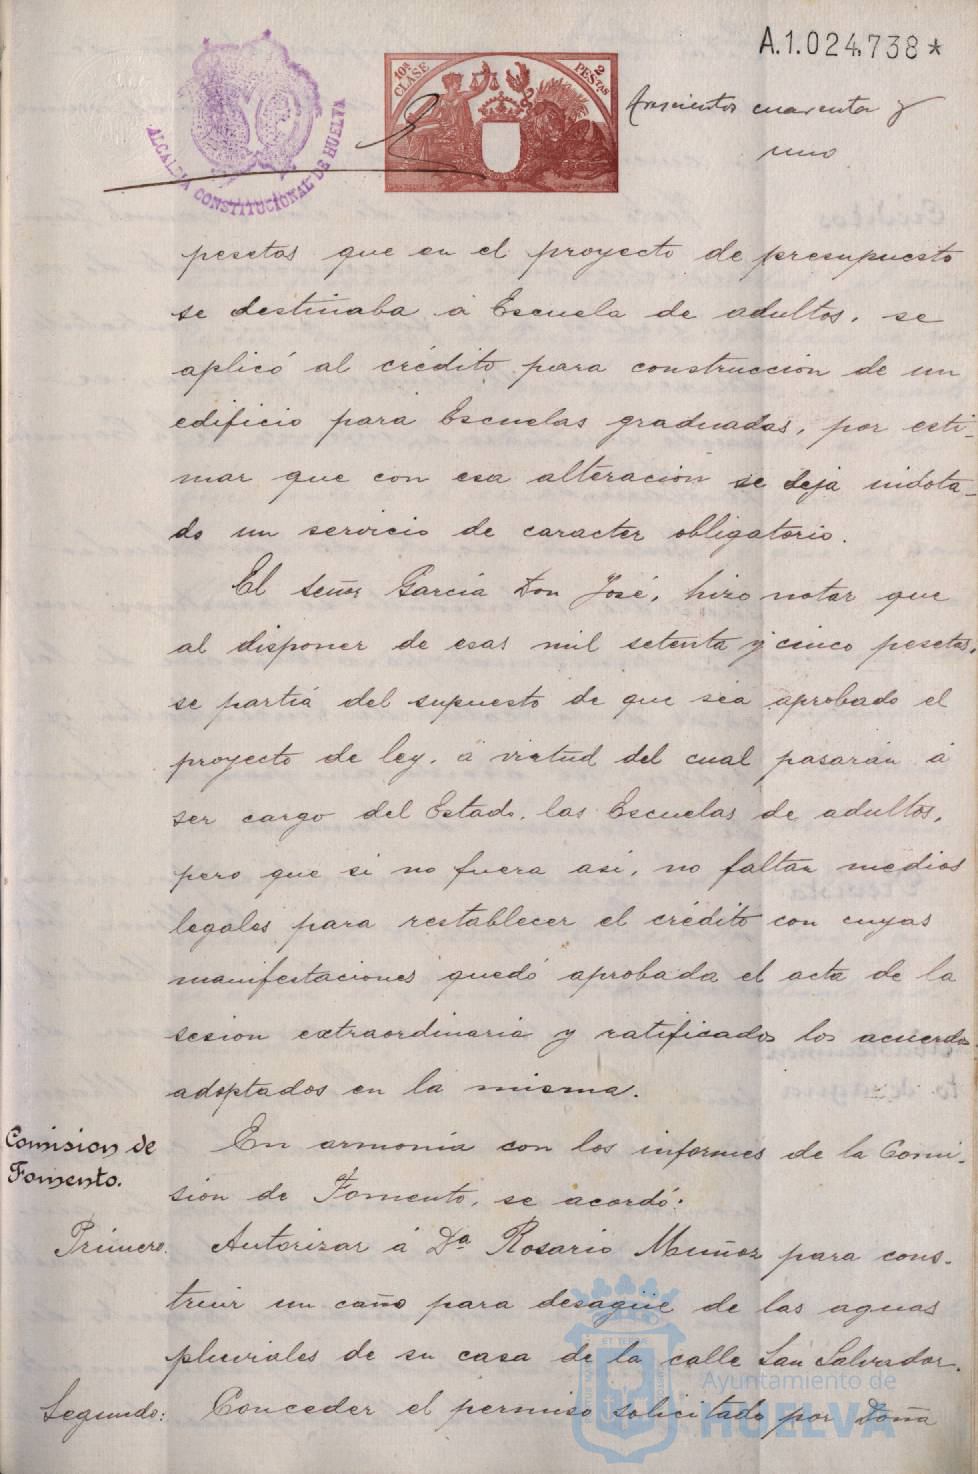 A.1.024.738*
10ª CLASE
2 PESTAS
ALCALDIA CONSTITUCIONAL DE HUELVA
cuarenta y
uno
pesetas que en el proyecto de presupuesto
se destinaba á Escuela de adultos, se
aplicó al crédito para construccion de un
edificio para Escuelas graduadas, por esti-
mar que con esa alteracion se deja indota-
do un servicio de caracter obligatorio.
El señor Garcia Don José, hizo notar que
al disponer de esas mil setenta y cinco pesetas,
se partiá del supuesto de que sea aprobado el
proyecto de ley, á virtud del cual pasarán á
ser cargo del Estado, las Escuelas de adultos,
pero que si no fuera asi, no faltan medios
legales para restablecer el crédito con cuyas
manifestaciones quedó aprobada el acta de la
sesion extraordinaria y ratificados los acuerdos
adoptados en la misma.
Comision de
Fomento.
En armonia con los informes de la Comi-
sion de Fomento, se acordó:
Primero. Autorizar á Dª Rosario Muñoz para cons-
truir un caño para desagüe de las aguas
pluviales de su casa de la calle San Salvador.
Segundo: Conceder el permiso solicitado por Doña
Ayuntamiento de
HUELVA